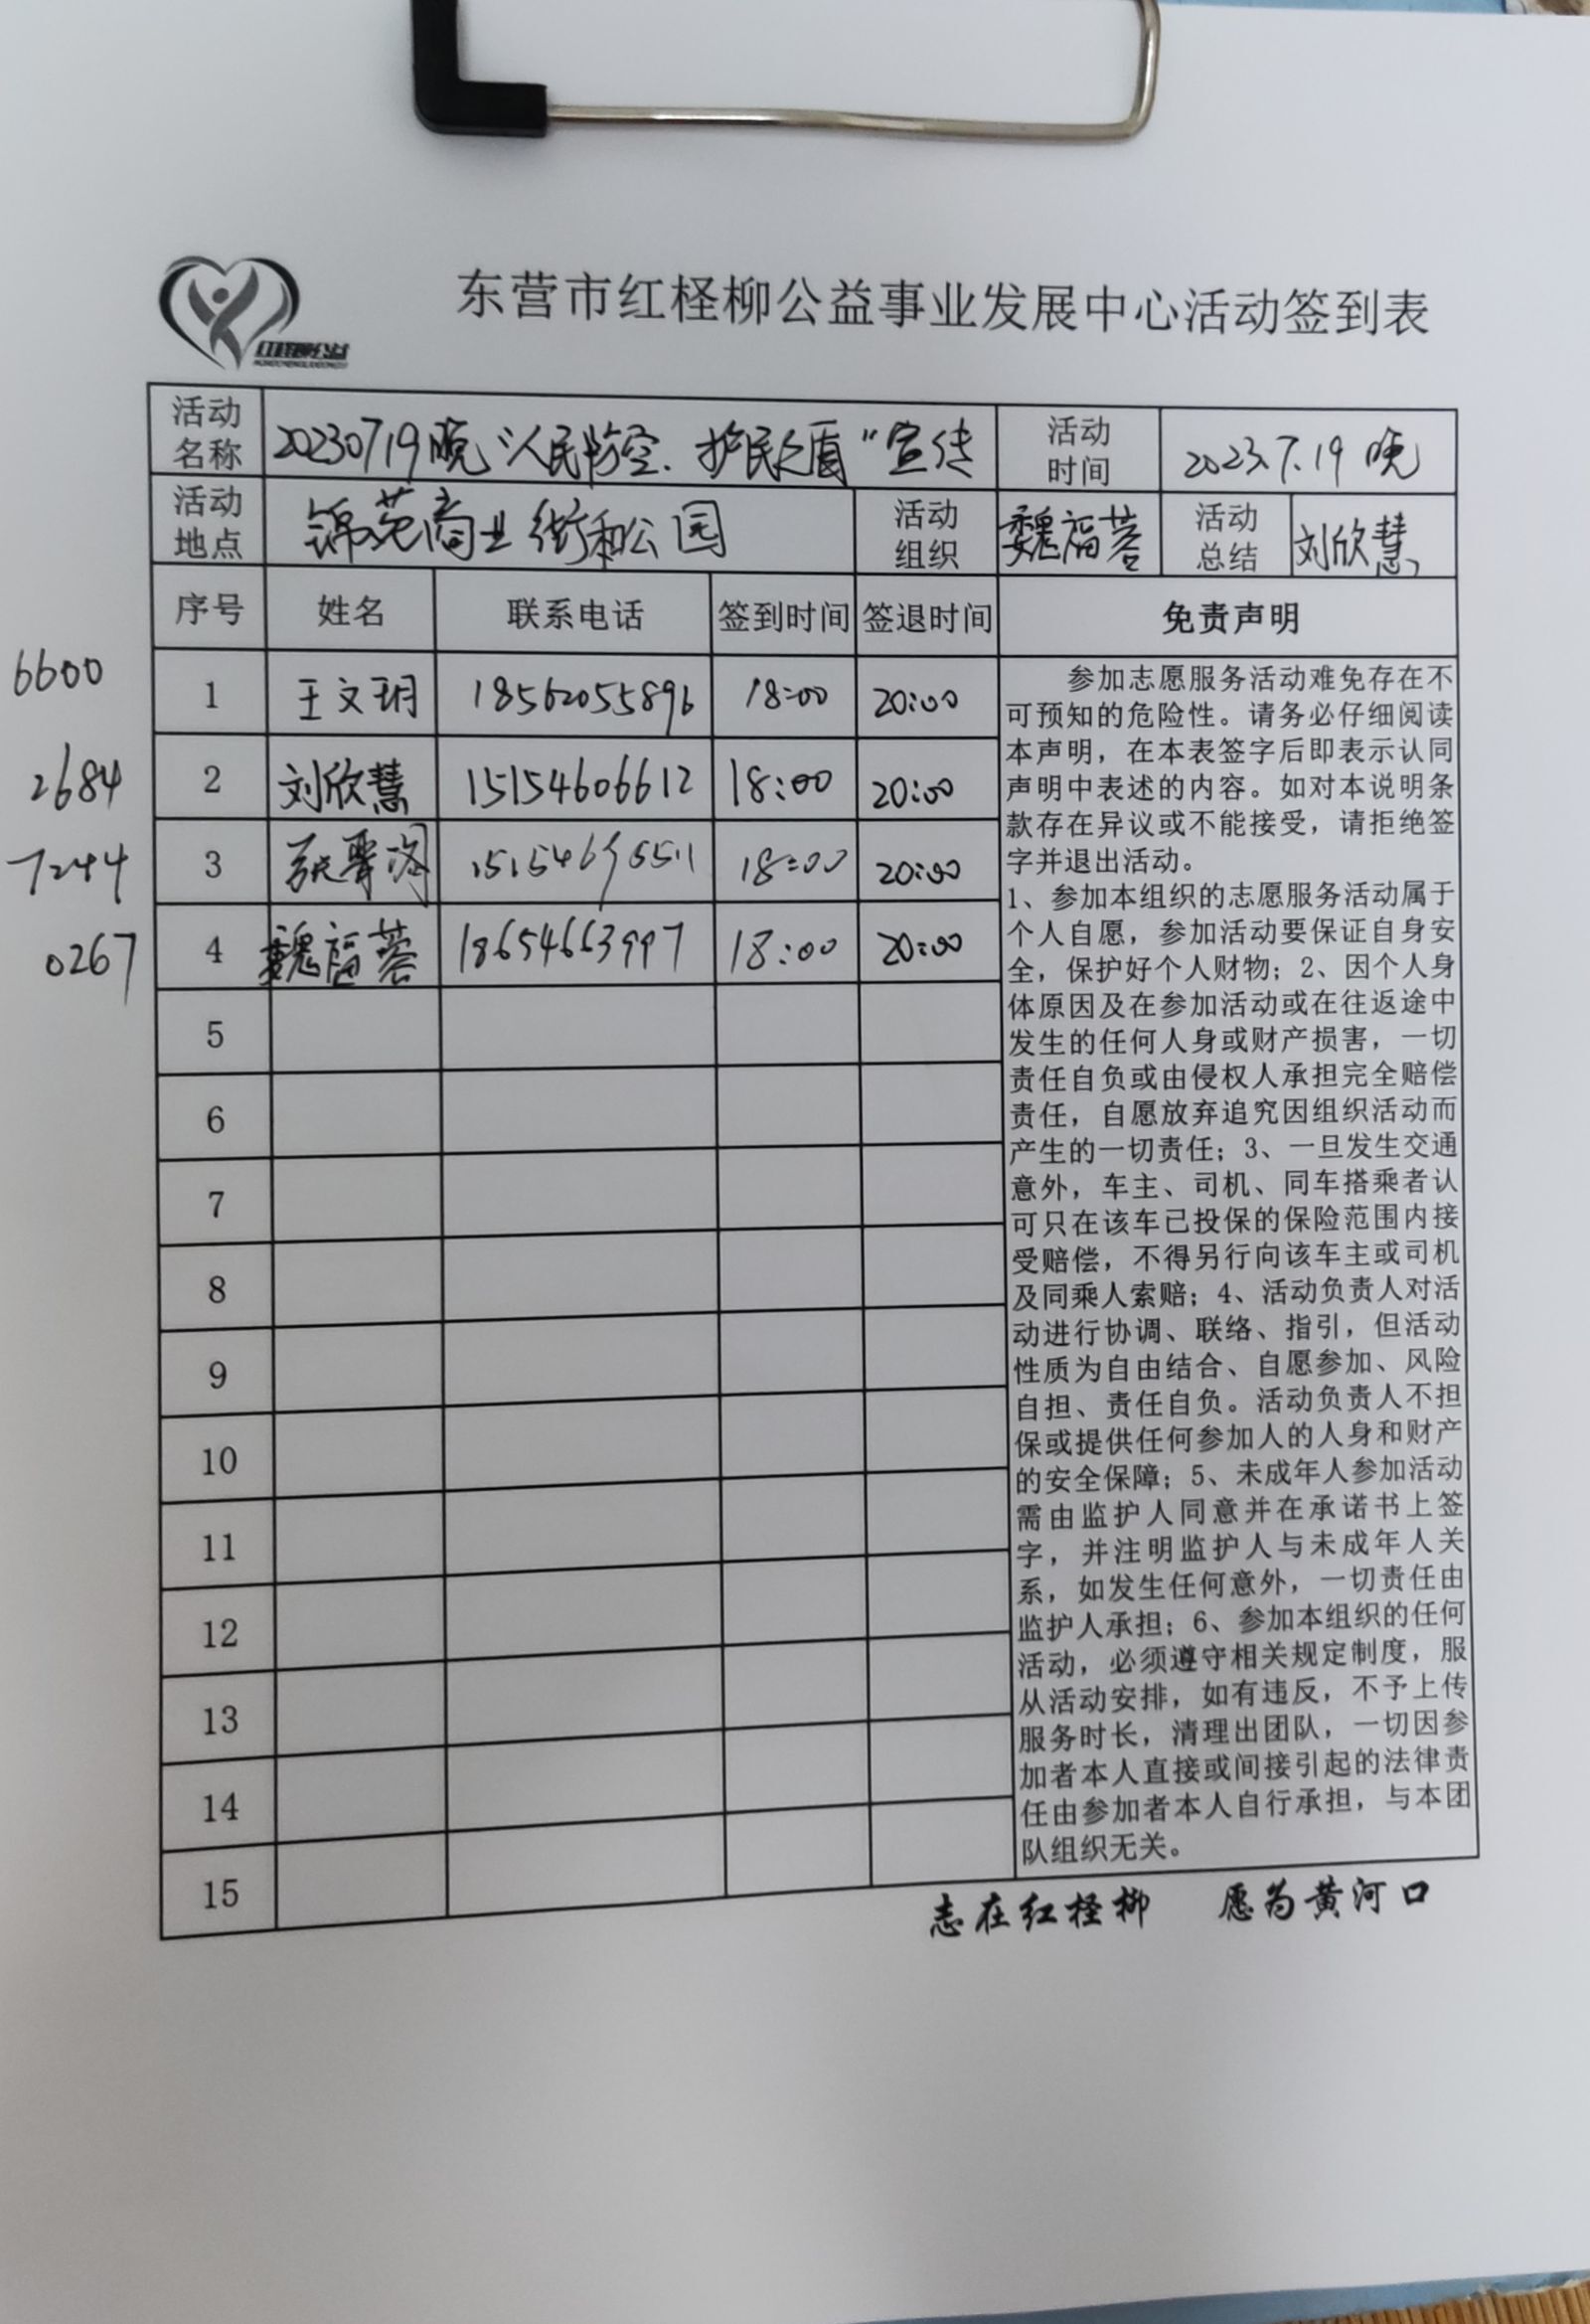 东营市红柽柳公益事业发展中心活动签到表
红柽柳公益
活动名称 20230719晚“人民防空、护民之盾”宣传 活动时间 2023.7.19 晚
活动地点 锦苑商业街和公园 活动组织 魏福蓉 活动总结 刘欣慧
序号 姓名 联系电话 签到时间 签退时间 免责声明
6600 1 王文玥 18562055896 18:00 20:00
2684 2 刘欣慧 15154606612 18:00 20:00
7244 3 张 18:00 20:00
0267 4 魏福蓉 18654663997 18:00 20:00
5
6
7
8
9
10
11
12
13
14
15
参加志愿服务活动难免存在不
可预知的危险性。请务必仔细阅读
本声明，在本表签字后即表示认同
声明中表述的内容。如对本说明条
款存在异议或不能接受，请拒绝签
字并退出活动。
1、参加本组织的志愿服务活动属于
个人自愿，参加活动要保证自身安
全，保护好个人财物；2、因个人身
体原因及在参加活动或在往返途中
发生的任何人身或财产损害，一切
责任自负或由侵权人承担完全赔偿
责任，自愿放弃追究因组织活动而
产生的一切责任；3、一旦发生交通
意外，车主、司机、同车搭乘者认
可只在该车已投保的保险范围内接
受赔偿，不得另行向该车主或司机
及同乘人索赔；4、活动负责人对活
动进行协调、联络、指引，但活动
性质为自由结合、自愿参加、风险
自担、责任自负。活动负责人不担
保或提供任何参加人的人身和财产
的安全保障；5、未成年人参加活动
需由监护人同意并在承诺书上签
字，并注明监护人与未成年人关
系，如发生任何意外，一切责任由
监护人承担；6、参加本组织的任何
活动，必须遵守相关规定制度，服
从活动安排，如有违反，不予上传
服务时长，清理出团队，一切因参
加者本人直接或间接引起的法律责
任由参加者本人自行承担，与本团
队组织无关。
志在红柽柳 愿为黄河口